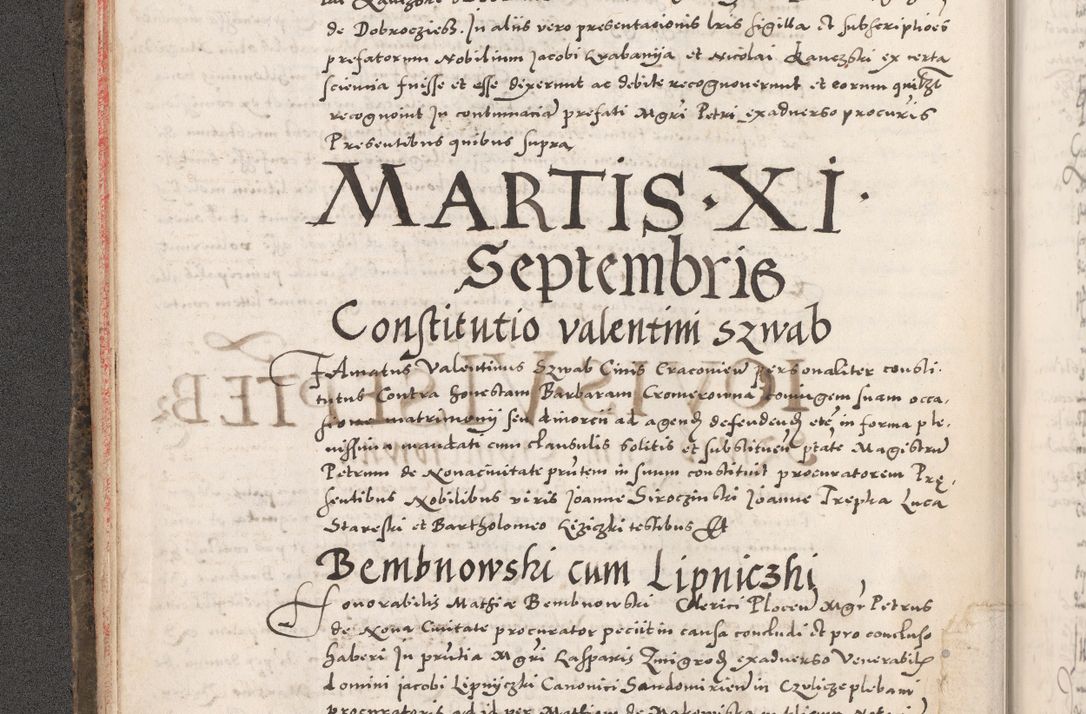 de Dobrocziess. In aliis vero presentacionis lris sigilla et subscriptiões
prefatorum Nobilium Jacobi Krabanija et Nicolai Kanczski ex certa
sciencia fuisse et esse dixerunt ac debite recognoverunt et eorum
recognoint In contumaciã prefati Mgri Petri exadverso procuris
Presentibus quibus supra
MARTIS · XI ·
Septembris
Constitutio Valentini Szwab
FAmatus Valentinus Szwab Civis Cracovieñ personaliter consti-
tutus Contra honestam Barbaram Cromerowna coniugem suam occa-
sione matrimonij seu divorcii ad agend defendend etc in forma ple-
nissima mandati cum clausulis solitis et substituen ptate Magistrũ
Petrum de Novacivitate prñtem in suum constituit procuratorem Prę-
sentibus Nobilibus viris Joanne Siroczinski Joanne Trepka Luca
Stareski et Bartholomeo Kiziczki testibus Et
Bembnowski cum Lipniczki
Honorabilis Mathiæ Bembnowski Clerici Ploceñ Mgr Petrus
de Nova Civitate procurator peciit in causa concludi et pro concluso
haberi In prñtia Mgri Casparis Zmigrod exadverso Venerabil
domini Jacobi Lipnijczki Canonici Sandomirieñ in Czvlicze plebani
procuratoris ad id per Mathiam de Makowiska publicum